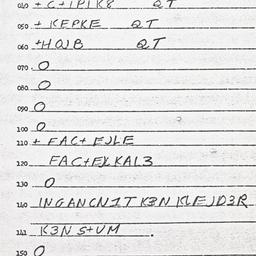 040 + C+IPIK8 QT
050 + KEPKE QT
060 +HOJB QT
070 O
080 O
090 O
100 O
110 + FAC+ EJLE
120 FAC+EJLKAI3
130 O
140 INGANCNIT K3N KLEJD3R
141 K3N S+UM .
150 O